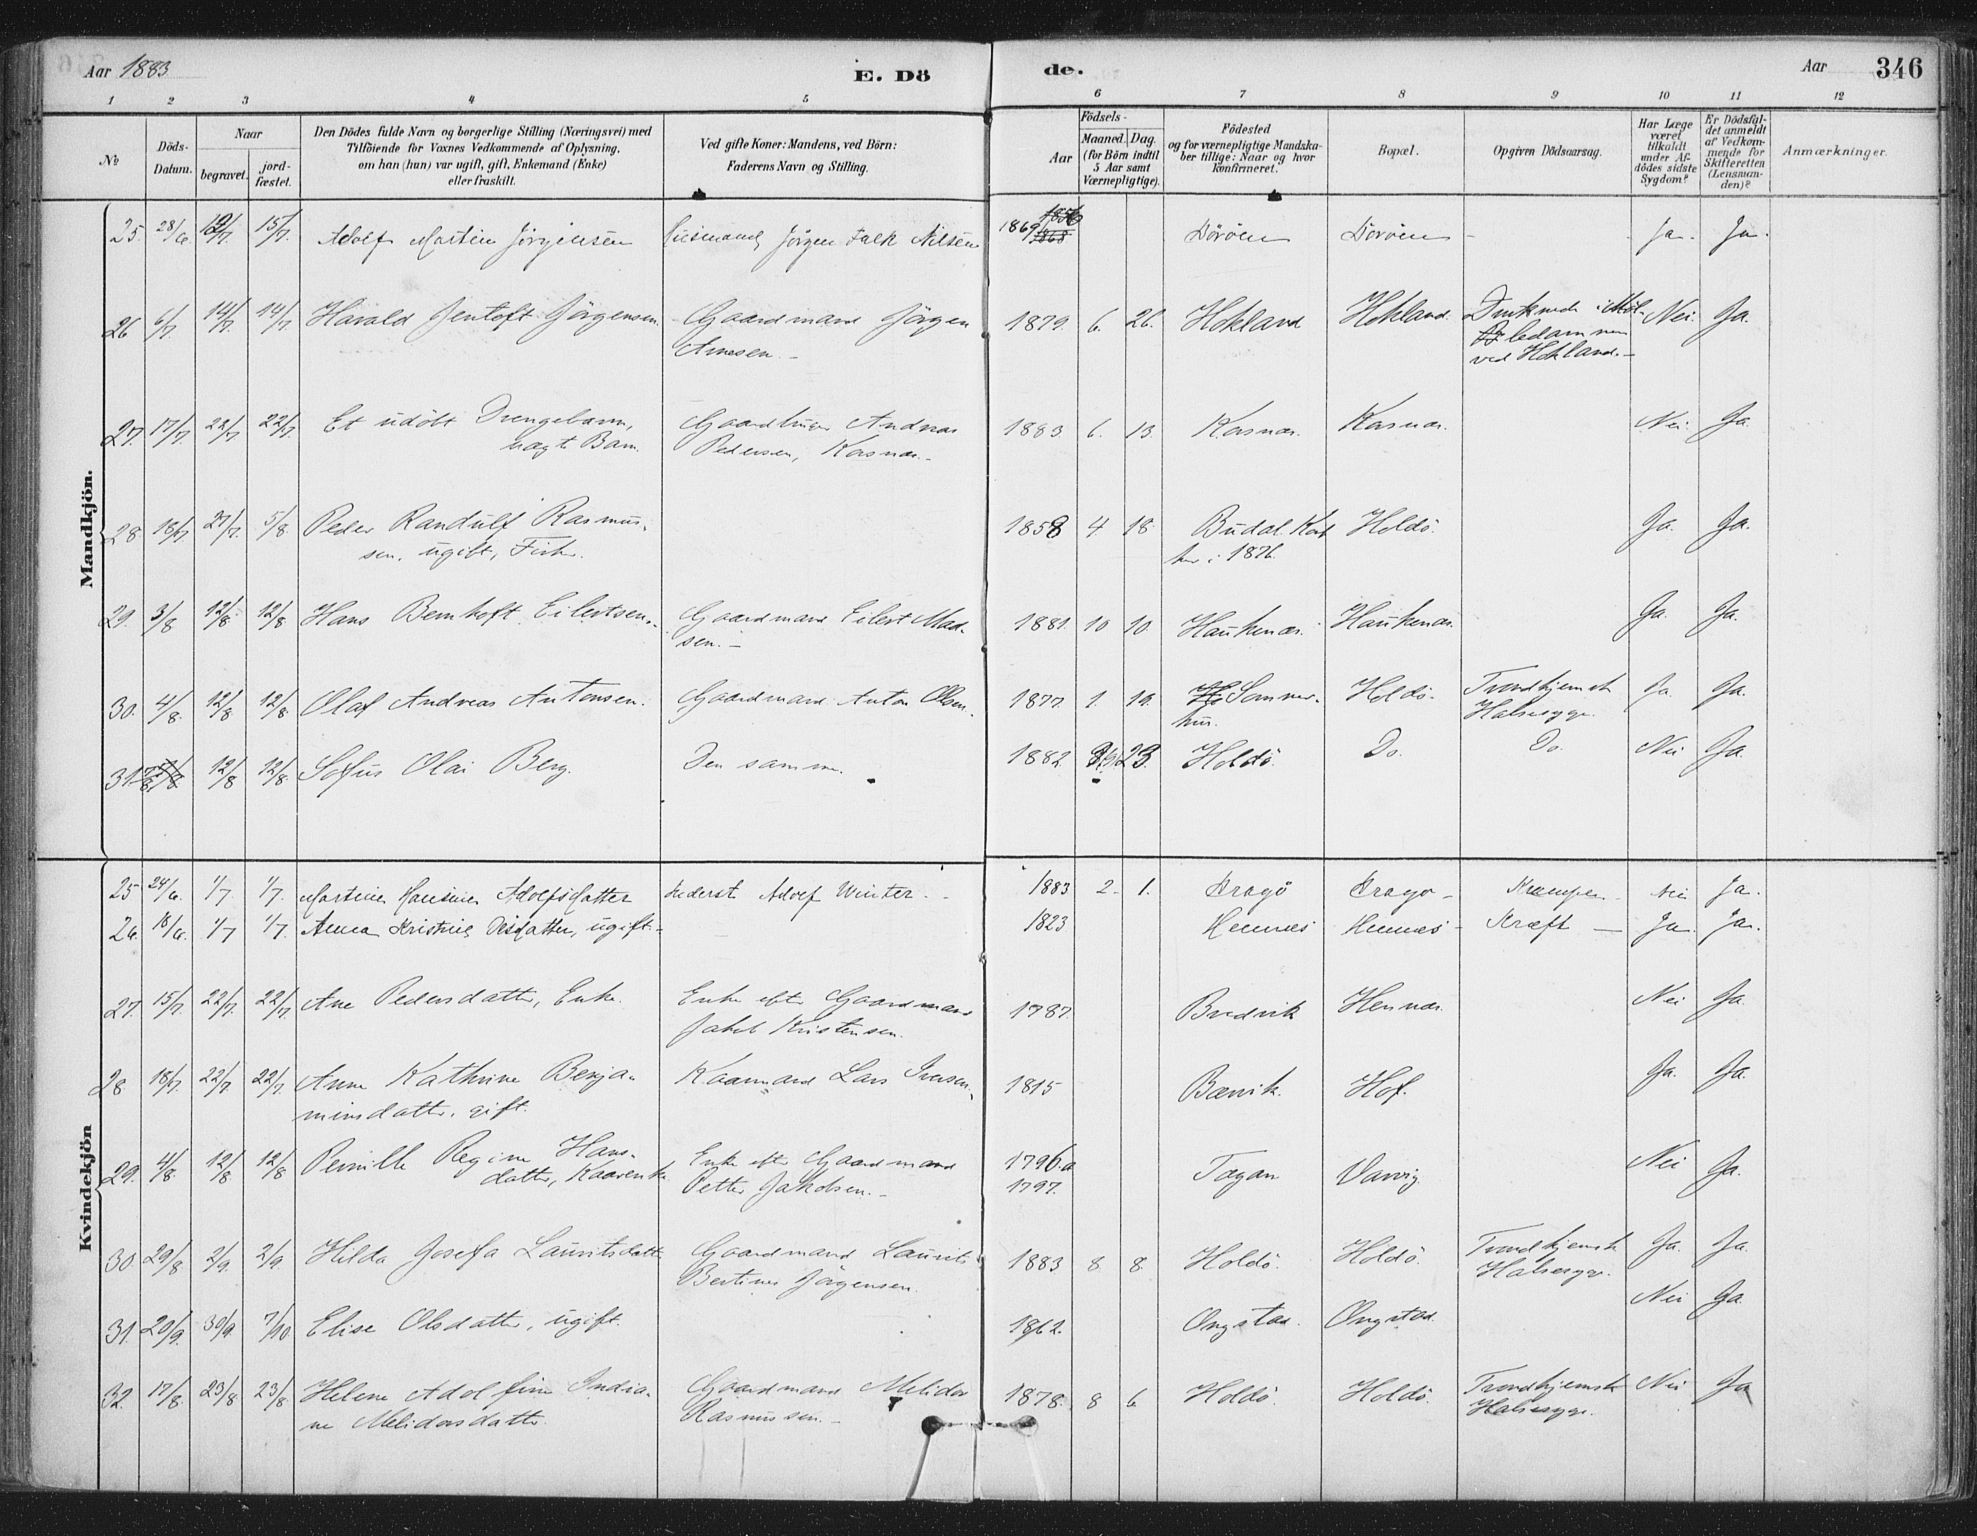 Aar 1883
E. Dö
de.
Aar
346
1 2 3 4 5 6 7 8 9 10 11 12
No
Döds-
Datum.
Naar
begravet.
jord-
fæstet.
Den Dödes fulde Navn og borgerlige Stilling (Næringsvei) med
Tilföiende for Voxnes Vedkommende af Oplysning,
om han (hun) var ugift, gift, Enkemand (Enke)
eller fraskilt.
Ved gifte Koner: Mandens, ved Börn:
Faderens Navn og Stilling.
Födsels-
Aar
Maaned.
Dag.
(for Börn indtil
5 Aar samt
Værnepligtige).
Födested
og for værnepligtige Mandska-
ber tillige: Naar og hvor
konfirmeret.
Bopæl.
Opgiven Dödsaarsag.
Har Læge
været
tilkaldt
under Af-
dödes sidste
Sygdom?
Er Dödsfal-
det anmeldt
af Vedkom-
mende for
Skifteretten
(Lensman-
den)?
Anmærkninger.
Mandkjön.
25. 28/6 15/7. Adolf Martin Jörgensen Jörgen Falk Nilsen 1869 Ja. Ja.
26 6/7. 14/7. 14/7 Harald Jentoft Jörgensen. Gaardmand Jörgen 1879. 6. 26. Hokland Hokland. Druknede i Möl- Nei. Ja.
Arnesen. - ledammen
ved Hokland. -
27. 17/7 22/7 22/7. Et udöbt Drengebarn, Andreas 1883. 6. 13. Kasnæs. Kasnæs. Nei. Ja.
Barn. Pedersen, Kasnæs. -
28. 18/7. 27/7. 5/8. Peder Randulf Rasmus- 1858 4 18 Budal. Holdö. Ja. Ja.
sen, ugift, i 1876.
29. 3/8 12/8 12/8 Hans Bernhoft Eilertsen. Gaardmand Eilert Mad- 1881. 10 10. Haukenæs. Haukenæs. Ja. Ja.
sen. -
30. 4/8. 12/8 12/8. Olaf Andreas Antonsen. Gaardmand Anton Olsen. 1877. 1. 19. Sommer- Holdö. Trondhjemsk Ja. Ja.
hus. Halsesyge.
31. 12/8 12/8 Sofus Olai Berg. Den samme. 1882. 23. Holdö. Do. Do. Nei Ja.
Kvindekjön
25 24/6. 1/7. 1/7. Martine Hansine Adolfsdatter Inderst Adolf Winter. - 1883 2. 1. Kramper Nei Ja.
26. 18/6. 1/7 1/7. Anna Kristine ugift. 1823 Hennæs Hennæs - Kræft Ja. Ja.
27. 15/7. 22/7. 22/7 Ane Pedersdatter, Enke. Enke efter Gaardmand 1787. Bredvik Hennæs. Nei Ja.
Jakob Kristensen.
28 18/7. 22/7 22/7. Anne Kathrine Benja- Kaarmand Lars Iversen. 1815 Bærvik. Hof. Ja. Ja.
minsdatter, gift.
29. 4/8. 12/8 12/8 Pernille Regine Hans- Enke efter Gaardmand 1796 a Tagan Nei Ja.
datter, Kaarenke Petter Jakobsen. - 1797.
30. 29/8 2/9. 2/9. Hilda Josefa Lauritsdatter Gaardmand Laurits 1883 8. 8. Holdö. Holdö. Trondhjemsk Ja. Ja.
Bertines Jörgensen. Halsesyge.
31. 20/9. 30/9. 7/10 Elise Olsdatter, ugift. 1862. Ongstad. Ongstad. Nei Ja.
32. 17/8. 23/8 23/8 Helene Adolfine India- Gaardmand Melidor 1878. 8 6 Holdö. Holdö. Trondhjemsk Nei Ja
ne Melidorsdatter. Rasmussen. - Halsesyge.